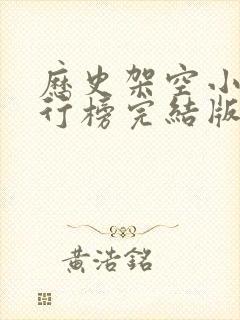 歷史架空小
行榜完結版
黃浩銘